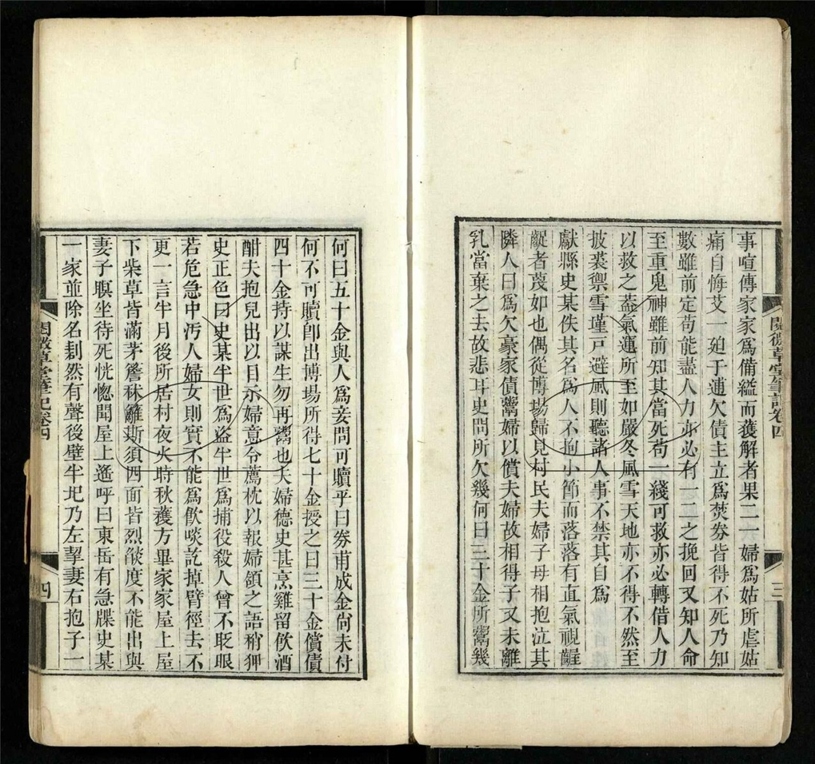 事喧傳家家為備縊而獲解者果二一婦為姑所虐姑
痛自悔艾一廹于逋欠債主立為焚券皆得不死乃知
數雖前定苟能盡人力亦必有一二之挽回又知人命
至重鬼神雖前知其當死苟一綫可救亦必轉借人力
以救之葢氣運所至如嚴冬風雪天地亦不得不然至
披裘禦雪墐戸避風則聽諸人事不禁其自為
獻縣史某佚其名為人不拘小節而落落有直氣視齷
齪者蔑如也偶從博塲歸見村民夫婦子母相抱泣其
隣人曰為欠豪家債鬻婦以償夫婦故相得子又未離
乳當棄之去故悲耳史問所欠幾何曰三十金所鬻幾
閱微草堂筆記卷四
三
何曰五十金與人為妾問可贖乎曰券甫成金尚未付
何不可贖卽出博塲所得七十金授之曰三十金償債
四十金持以謀生勿再鬻也夫婦德史甚烹雞留飲酒
酣夫抱兒出以目示婦意令薦枕以報婦頷之語稍狎
史正色曰史某半世為盜半世為捕役殺人曾不眨眼
若危急中汚人婦女則實不能為飲啖訖掉臂徑去不
更一言半月後所居村夜火時秋穫方畢家家屋上屋
下柴草皆滿茅簷秫籬斯須四面皆烈燄度不能出與
妻子瞑坐待死恍惚聞屋上遙呼曰東岳有急牒史某
一家並除名剨然有聲後壁半圮乃左挈妻右抱子一
閱微草堂筆記卷四
四